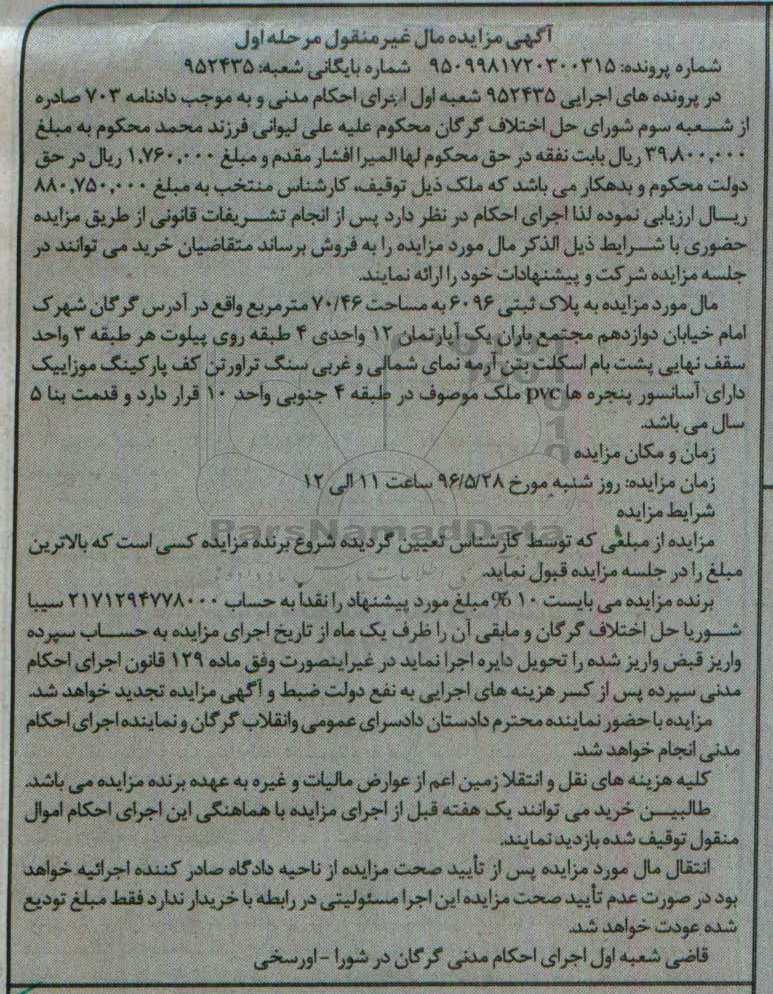 آگهی مزایده مال غیر منقول مرحله اول
شماره پرونده: ۹۵۰۹۹۸۱۷۲۰۳۰۰۳۱۵ شماره بایگانی شعبه: ۹۵۲۴۳۵
در پرونده های اجرایی ۹۵۲۴۳۵ شعبه اول اجرای احکام مدنی و به موجب دادنامه ۷۰۳ صادره
از شعبه سوم شورای حل اختلاف گرگان محکوم علیه علی لیوانی فرزند محمد محکوم به مبلغ
۳۹,۸۰۰,۰۰۰ ریال بابت نفقه در حق محکوم لها المیرا افشار مقدم و مبلغ ۱,۷۶۰,۰۰۰ ریال در حق
دولت محکوم و بدهکار می باشد که ملک ذیل توقیف، کارشناس منتخب به مبلغ ۸۸۰,۷۵۰,۰۰۰
ریال ارزیابی نموده لذا اجرای احکام در نظر دارد پس از انجام تشریفات قانونی از طریق مزایده
حضوری با شرایط ذیل الذکر مال مورد مزایده را به فروش برساند متقاضیان خرید می توانند در
جلسه مزایده شرکت و پیشنهادات خود را ارائه نمایند.
مال مورد مزایده به پلاک ثبتی ۶۰۹۶ به مساحت ۷۰/۴۶ مترمربع واقع در آدرس گرگان شهرک
امام خیابان دوازدهم مجتمع باران یک آپارتمان ۱۲ واحدی ۴ طبقه روی پیلوت هر طبقه ۳ واحد
سقف نهایی پشت بام اسکلت بتن آرمه نمای شمالی و غربی سنگ تراورتن کف پارکینگ موزاییک
دارای آسانسور پنجره ها pvc ملک موصوف در طبقه ۴ جنوبی واحد ۱۰ قرار دارد و قدمت بنا ۵
سال می باشد.
زمان و مکان مزایده
زمان مزایده: روز شنبه مورخ ۹۶/۵/۲۸ ساعت ۱۱ الی ۱۲
شرایط مزایده
مزایده از مبلغی که توسط کارشناس تعیین گردیده شروع برنده مزایده کسی است که بالاترین
مبلغ را در جلسه مزایده قبول نماید.
برنده مزایده می بایست ۱۰ % مبلغ مورد پیشنهاد را نقداً به حساب ۲۱۷۱۲۹۴۷۷۸۰۰۰ سیبا
شوریا حل اختلاف گرگان و مابقی آن را ظرف یک ماه از تاریخ اجرای مزایده به حساب سپرده
واریز قبض واریز شده را تحویل دایره اجرا نماید در غیراینصورت وفق ماده ۱۲۹ قانون اجرای احکام
مدنی سپرده پس از کسر هزینه های اجرایی به نفع دولت ضبط و آگهی مزایده تجدید خواهد شد.
مزایده با حضور نماینده محترم دادستان دادسرای عمومی وانقلاب گرگان و نماینده اجرای احکام
مدنی انجام خواهد شد.
کلیه هزینه های نقل و انتقلا زمین اعم از عوارض مالیات و غیره به عهده برنده مزایده می باشد.
طالبین خرید می توانند یک هفته قبل از اجرای مزایده با هماهنگی این اجرای احکام اموال
منقول توقیف شده بازدید نمایند.
انتقال مال مورد مزایده پس از تأیید صحت مزایده از ناحیه دادگاه صادر کننده اجرائیه خواهد
بود در صورت عدم تأیید صحت مزایده این اجرا مسئولیتی در رابطه با خریدار ندارد فقط مبلغ تودیع
شده عودت خواهد شد.
قاضی شعبه اول اجرای احکام مدنی گرگان در شورا - اورسخی
ParsNamadData